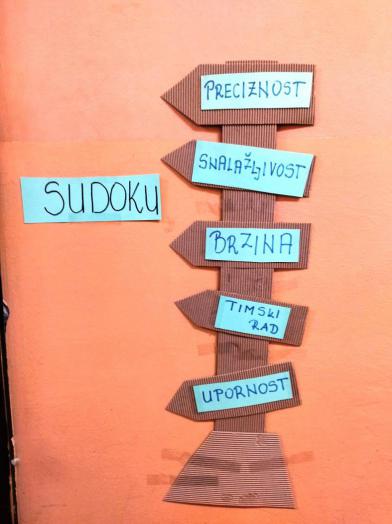 PRECIZNOST
SNALAŽLJIVOST
SUDOKU
BRZINA
TIMSKI
RAD
UPORNOST